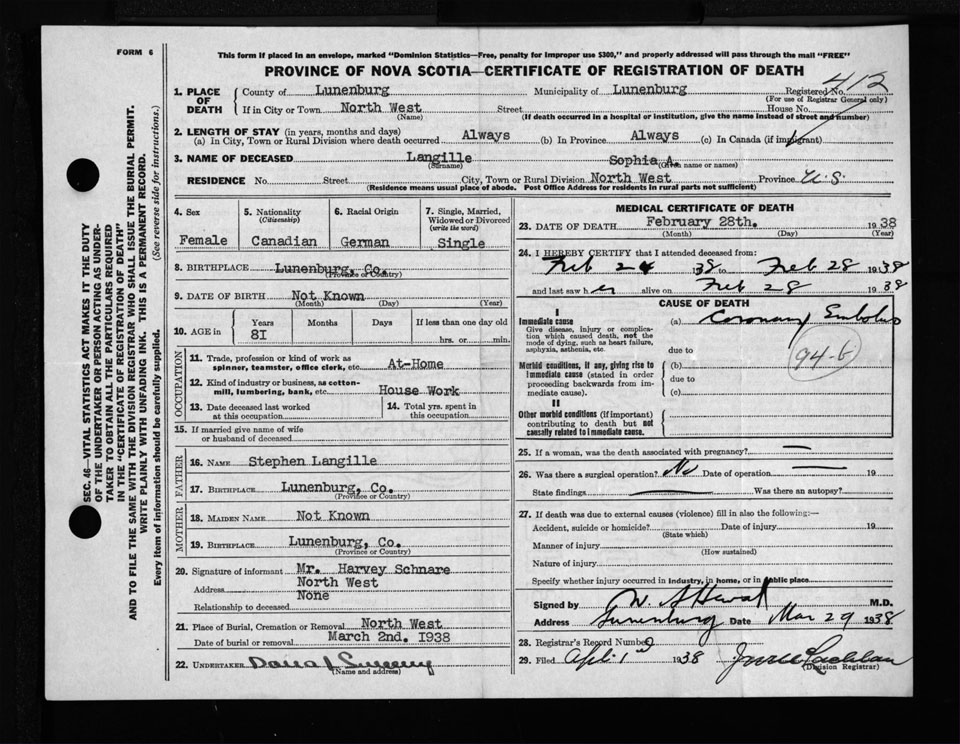 FORM 6
This form if placed in an envelope, marked "Dominion Statistics—Free, penalty for improper use $300," and properly addressed will pass through the mail "FREE"
PROVINCE OF NOVA SCOTIA—CERTIFICATE OF REGISTRATION OF DEATH
SEC. 46—VITAL STATISTICS ACT MAKES IT THE DUTY
OF THE UNDERTAKER OR PERSON ACTING AS UNDER-
TAKER TO OBTAIN ALL THE PARTICULARS REQUIRED
IN THE "CERTIFICATE OF REGISTRATION OF DEATH"
AND TO FILE THE SAME WITH THE DIVISION REGISTRAR WHO SHALL ISSUE THE BURIAL PERMIT.
WRITE PLAINLY WITH UNFADING INK. THIS IS A PERMANENT RECORD.
Every item of information should be carefully supplied. (See reverse side for instructions.)
1. PLACE OF DEATH
County of Lunenburg Municipality of Lunenburg Registered No. 412
(For use of Registrar General only)
If in City or Town North West Street House No.
(Name) (If death occurred in a hospital or institution, give the name instead of street and number)
2. LENGTH OF STAY (in years, months and days)
(a) In City, Town or Rural Division where death occurred Always (b) In Province Always (c) In Canada (if immigrant)
3. NAME OF DECEASED Langille Sophia A.
(Surname) (Given name or names)
RESIDENCE No. Street City, Town or Rural Division North West Province
(Residence means usual place of abode. Post Office Address for residents in rural parts not sufficient)
4. Sex 5. Nationality (Citizenship) 6. Racial Origin 7. Single, Married, Widowed or Divorced (write the word)
Female Canadian German Single
8. BIRTHPLACE Lunenburg, Co.
(Province or Country)
9. DATE OF BIRTH Not Known
(Month) (Day) (Year)
10. AGE in Years Months Days If less than one day old
8I hrs. or min.
OCCUPATION
11. Trade, profession or kind of work as
spinner, teamster, office clerk, etc. At-Home
12. Kind of industry or business, as cotton-
mill, lumbering, bank, etc. House Work
13. Date deceased last worked
at this occupation
14. Total yrs. spent in
this occupation
15. If married give name of wife
or husband of deceased
FATHER
16. NAME Stephen Langille
17. BIRTHPLACE Lunenburg, Co.
(Province or Country)
MOTHER
18. MAIDEN NAME Not Known
19. BIRTHPLACE Lunenburg, Co.
(Province or Country)
20. Signature of informant Mr. Harvey Schnare
Address North West
Relationship to deceased None
21. Place of Burial, Cremation or Removal North West
Date of burial or removal March 2nd. I938
22. UNDERTAKER
(Name and address)
MEDICAL CERTIFICATE OF DEATH
23. DATE OF DEATH February 28th. 1938
(Month) (Day) (Year)
24. I HEREBY CERTIFY that I attended deceased from:
Feb 24 38 to Feb 28 1938
and last saw her alive on Feb 28 1938
CAUSE OF DEATH
I
Immediate cause
Give disease, injury or complica-
tion which caused death, not the
mode of dying, such as heart failure,
asphyxia, asthenia, etc.
(a) Coronary Embolus
due to
94-b
Morbid conditions, if any, giving rise to
immediate cause (stated in order
proceeding backwards from im-
mediate cause).
(b)
due to
(c)
II
Other morbid conditions (if important)
contributing to death but not
causally related to immediate cause.
25. If a woman, was the death associated with pregnancy?
26. Was there a surgical operation? No Date of operation 19
State findings Was there an autopsy?
27. If death was due to external causes (violence) fill in also the following:—
Accident, suicide or homicide? Date of injury 19
(State which)
Manner of injury
(How sustained)
Nature of injury
Specify whether injury occurred in industry, in home, or in public place
Signed by M.D.
Address Lunenburg Date Mar 29 1938
28. Registrar's Record Number
29. Filed April 1 1938
(Division Registrar)